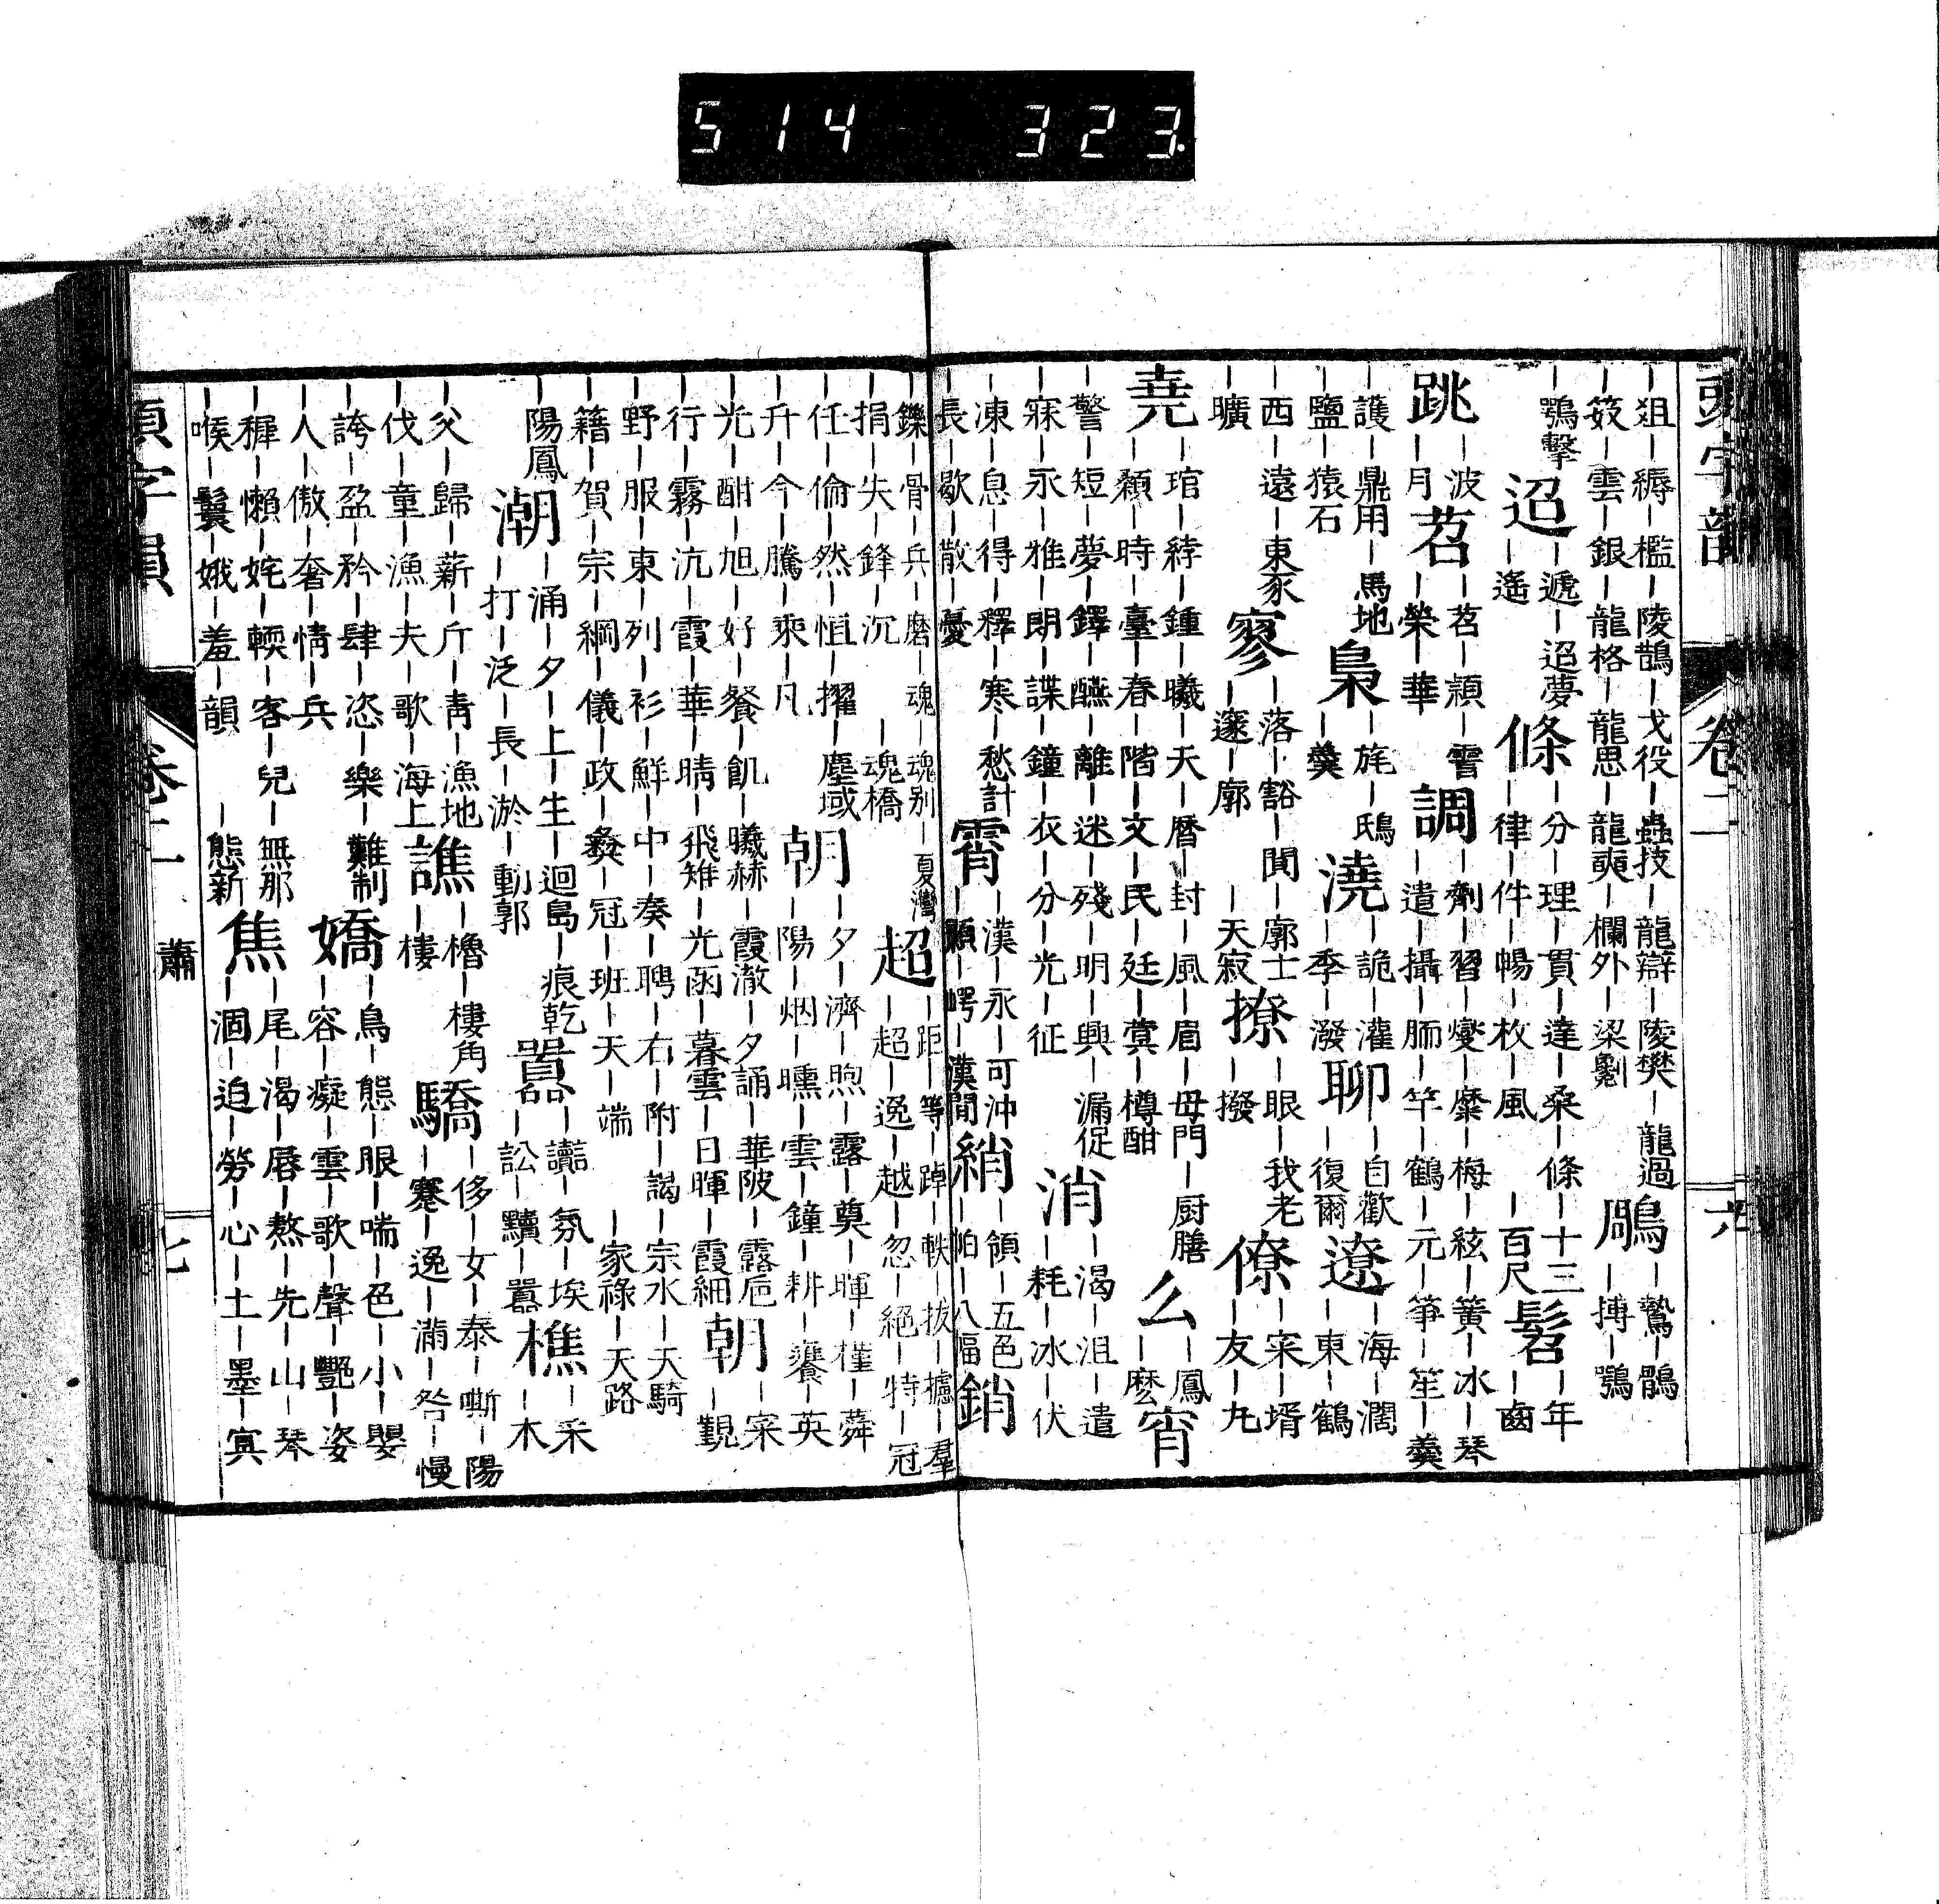 514 323
頭字韻 卷二 六
｜爼｜縟｜檻｜陵鵲｜戈役｜蟲技｜龍辯｜陵樊｜龍過｜笯｜雲｜銀｜龍格｜龍思｜龍奭｜欄外 鵰｜鷙｜鶻｜摶｜鶚
｜鶚擊 迢｜遞｜迢夢｜遙 條｜分｜理｜貫｜達｜桑｜條｜十三｜律｜件｜暢｜枚｜風｜百尺 髫｜年｜齒
跳｜波｜月 苕｜苕｜穎｜霅｜榮｜華 調｜劑｜習｜燮｜糜｜梅｜絃｜簧｜冰｜琴｜遣｜攝｜胹｜竽｜鶴｜元｜箏｜笙｜羹
｜護｜鼎用｜馬地｜鹽｜猿石 梟｜旄｜鴟｜羹 澆｜詭｜灌｜季｜潑 聊｜自歡｜復爾 遼｜海｜濶｜東｜鶴
｜西｜遠｜東豕｜曠 寥｜落｜豁｜閴｜廓士｜邃｜廓｜天寂 撩｜眼｜我老｜撥 僚｜寀｜壻｜友｜九
堯｜琯｜綍｜鍾｜曦｜天｜曆｜封｜風｜眉｜母門｜厨膳｜顙｜時｜臺｜春｜階｜文｜民｜廷｜蓂｜樽酣 么｜鳳｜麽 宵
｜警｜短｜夢｜鐸｜醼｜離｜迷｜殘｜明｜興｜漏促｜寐｜永｜雅｜朗｜諜｜鐘｜衣｜分｜光｜征 消｜渴｜沮｜遣｜耗｜冰｜伏
｜凍｜息｜得｜釋｜寒｜愁計｜長｜歇｜散｜憂 霄｜漢｜永｜可沖｜顥｜崿｜漢間 綃｜領｜五色｜帕｜八幅 銷
｜鑠｜骨｜兵｜磨｜魂｜魂别｜夏灣｜捐｜失｜鋒｜沉｜魂橋 超｜距｜等｜踔｜軼｜拔｜攄｜羣｜超｜逸｜越｜忽｜絕｜特｜冠
｜任｜倫｜然｜恒｜擢｜塵域｜升｜今｜騰｜乘｜凡 朝｜夕｜濟｜煦｜露｜奠｜暉｜槿｜蕣｜陽｜烟｜曛｜雲｜鐘｜耕｜饔｜英
｜光｜酣｜旭｜好｜餐｜飢｜曦赫｜霞澈｜夕誦｜華陂｜露巵｜行｜霧｜沆｜霞｜華｜晴｜飛雉｜光函｜暮雲｜日暉｜霞細 朝｜寀｜覲
｜野｜服｜東｜列｜衫｜鮮｜中｜奏｜聘｜右｜附｜謁｜宗水｜天騎｜籍｜賀｜宗｜綱｜儀｜政｜彜｜冠｜班｜天｜端｜家祿｜天路
｜陽鳳 潮｜涌｜夕｜上｜生｜迴島｜痕乾｜打｜泛｜長｜淤｜動郭 囂｜讟｜氛｜埃｜訟｜黷｜囂 樵｜采｜木
｜父｜歸｜薪｜斤｜靑｜漁地｜伐｜童｜漁｜夫｜歌｜海上 譙｜櫓｜樓角｜樓 驕｜侈｜女｜泰｜嘶｜陽｜蹇｜逸｜滿｜咎｜慢
｜誇｜盈｜矜｜肆｜恣｜樂｜難制｜人｜傲｜奢｜情｜兵 嬌｜鳥｜態｜眼｜喘｜色｜小｜嬰｜容｜癡｜雲｜歌｜聲｜艷｜姿
｜穉｜懶｜姹｜輭｜客｜兒｜無那｜喉｜鬟｜娥｜羞｜韻｜態新 焦｜尾｜渴｜唇｜熬｜先｜山｜琴｜涸｜迫｜勞｜心｜土｜墨｜冥
頭字韻 卷二 蕭 七